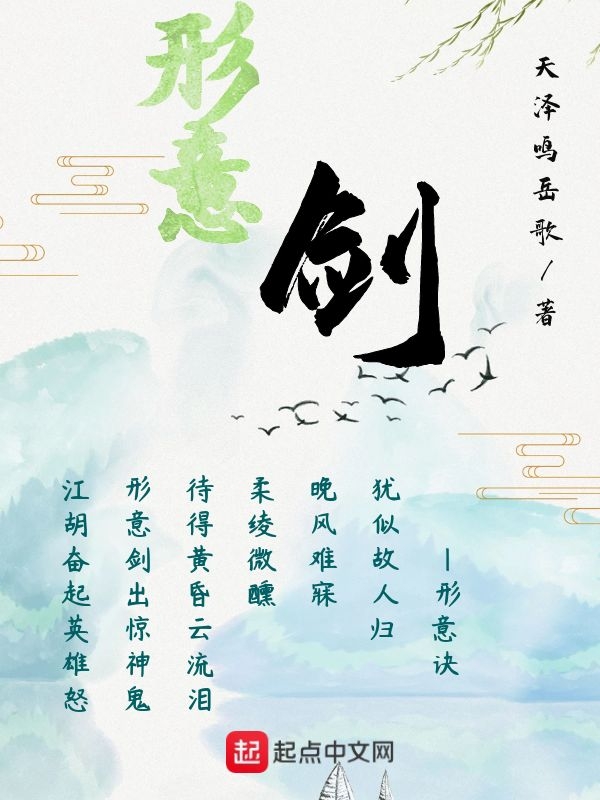 形意
剑
天泽鸣岳歌/著
江胡奋起英雄怒
形意剑出惊神鬼
待得黄昏云流泪
柔绫微醺
晚风难寐
犹似故人归
—形意诀
起 起点中文网